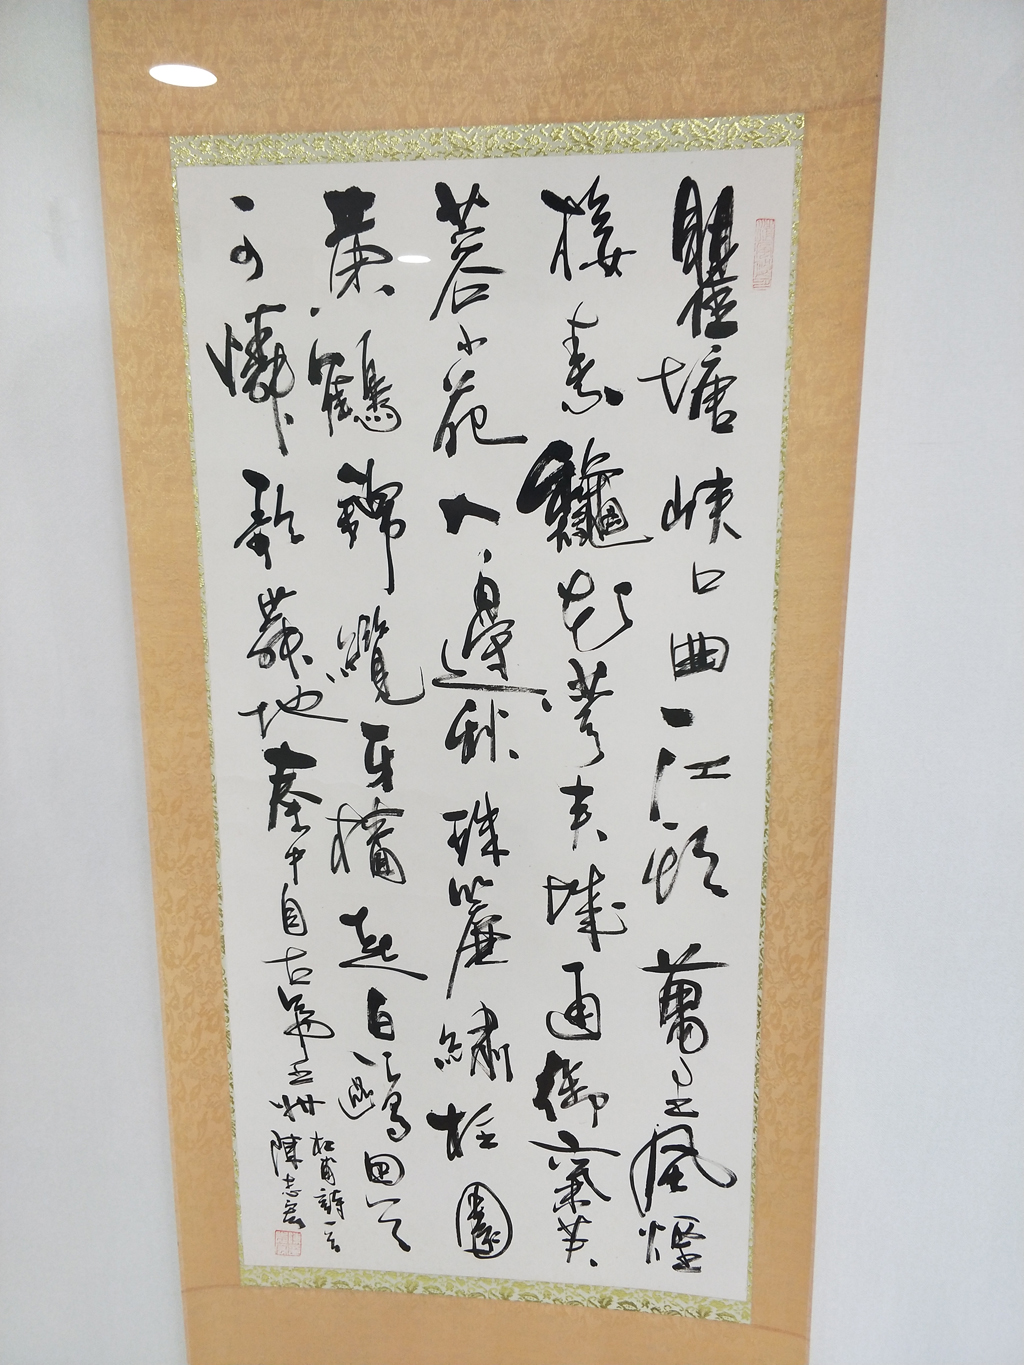 瞿塘峽口曲江頭萬里風煙
接素龝花萼夾城通御氣芙
蓉小苑入邊愁珠簾繡柱圍
黃鶴錦纜牙檣起白鷗回首
可憐歌舞地秦中自古帝王州
杜甫詩一首
陳志宏